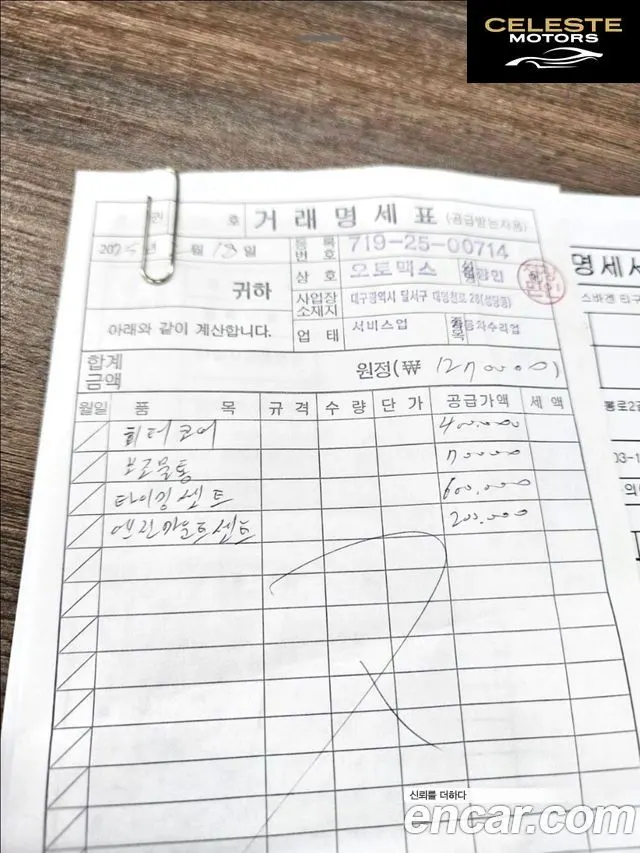 CELESTE
MOTORS
권 호 거래명세표 (공급받는자용)
년 월 13일
등록번호 719-25-00714
귀하
상호 오토멕스
사업장소재지 대구광역시 달서구
아래와 같이 계산합니다.
업태 서비스업
합계금액 원정(₩ 1270000)
월일 품목 규격 수량 단가 공급가액 세액
히터코어 400.000
보르물통 70000
타이밍셋트 600.000
엔진마운트셋트 200.000
명세서
신뢰를 더하다
encar.com